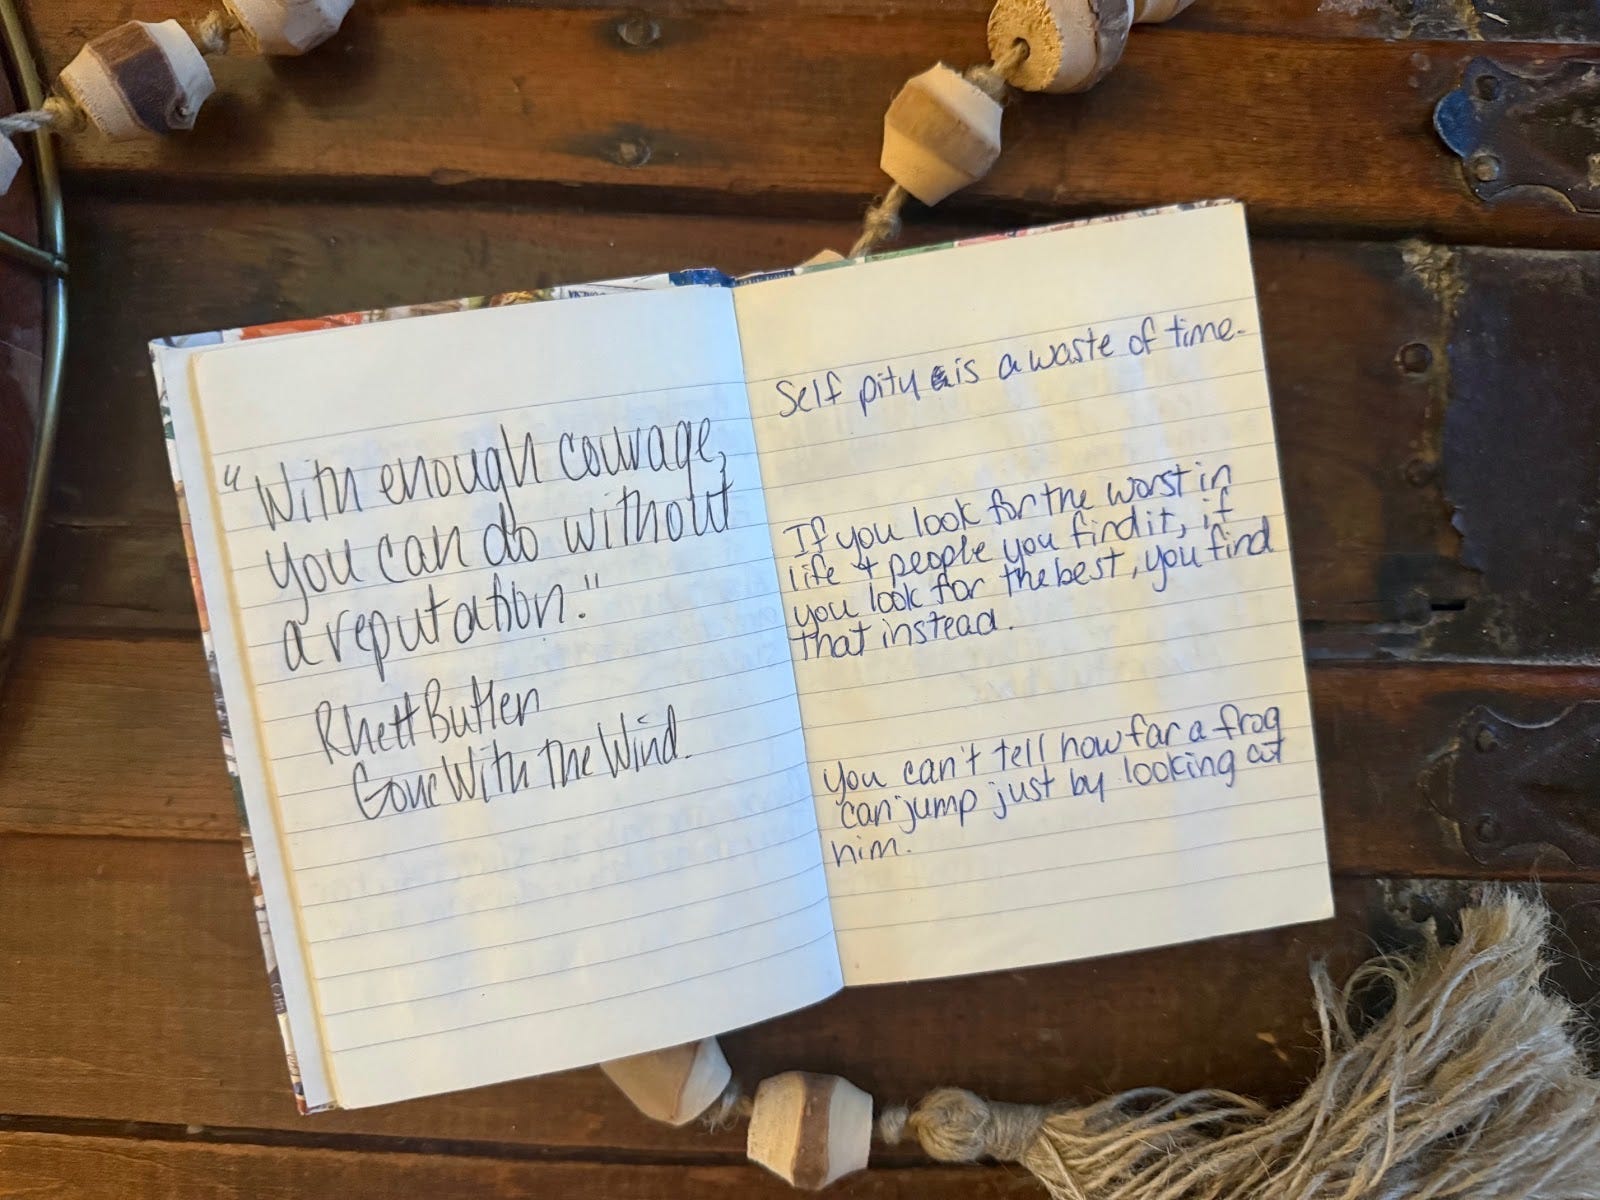 "With enough courage,
you can do without
a reputation."
Rhett Butler
Gone With the Wind.
Self pity is a waste of time.
If you look for the worst in
life & people you find it, if
you look for the best, you find
that instead.
You can't tell how far a frog
can jump just by looking at
him.